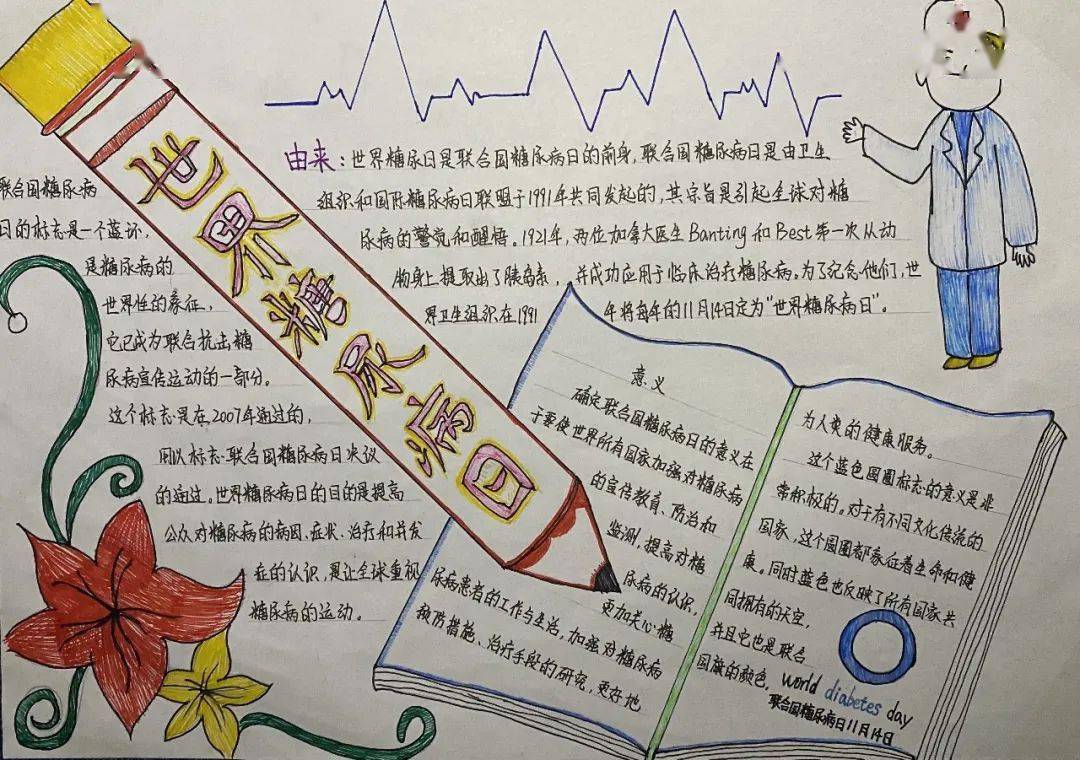 世界糖尿病日
由来：世界糖尿日是联合国糖尿病日的前身，联合国糖尿病日是由卫生
组织和国际糖尿病日联盟于1991年共同发起的，其宗旨是引起全球对糖
尿病的警觉和醒悟。1921年，两位加拿大医生Banting和Best第一次从动
物身上提取出了胰岛素，并成功应用于临床治疗糖尿病。为了纪念他们，世
界卫生组织在1991年将每年的11月14日定为“世界糖尿病日”。
联合国糖尿病
日的标志是一个蓝环，
是糖尿病的
世界性的象征，
它已成为联合抗击糖
尿病宣传运动的一部分。
这个标志是在2007年通过的，
用以标志联合国糖尿病日决议
的通过。世界糖尿病日的目的是提高
公众对糖尿病的病因、症状、治疗和并发
症的认识，是让全球重视
糖尿病的运动。
意义
确定联合国糖尿病日的意义在
于要使世界所有国家加强对糖尿病
的宣传教育、防治和
监测，提高对糖
尿病的认识，
更加关心糖
尿病患者的工作与生活，加强对糖尿病
预防措施、治疗手段的研究，更好地
为人类的健康服务。
这个蓝色圆圈标志的意义是非
常积极的。对于有不同文化传统的
国家，这个圆圈都象征着生命和健
康。同时蓝色也反映了所有国家共
同拥有的天空，
并且它也是联合
国旗的颜色，
world diabetes day
联合国糖尿病日11月14日